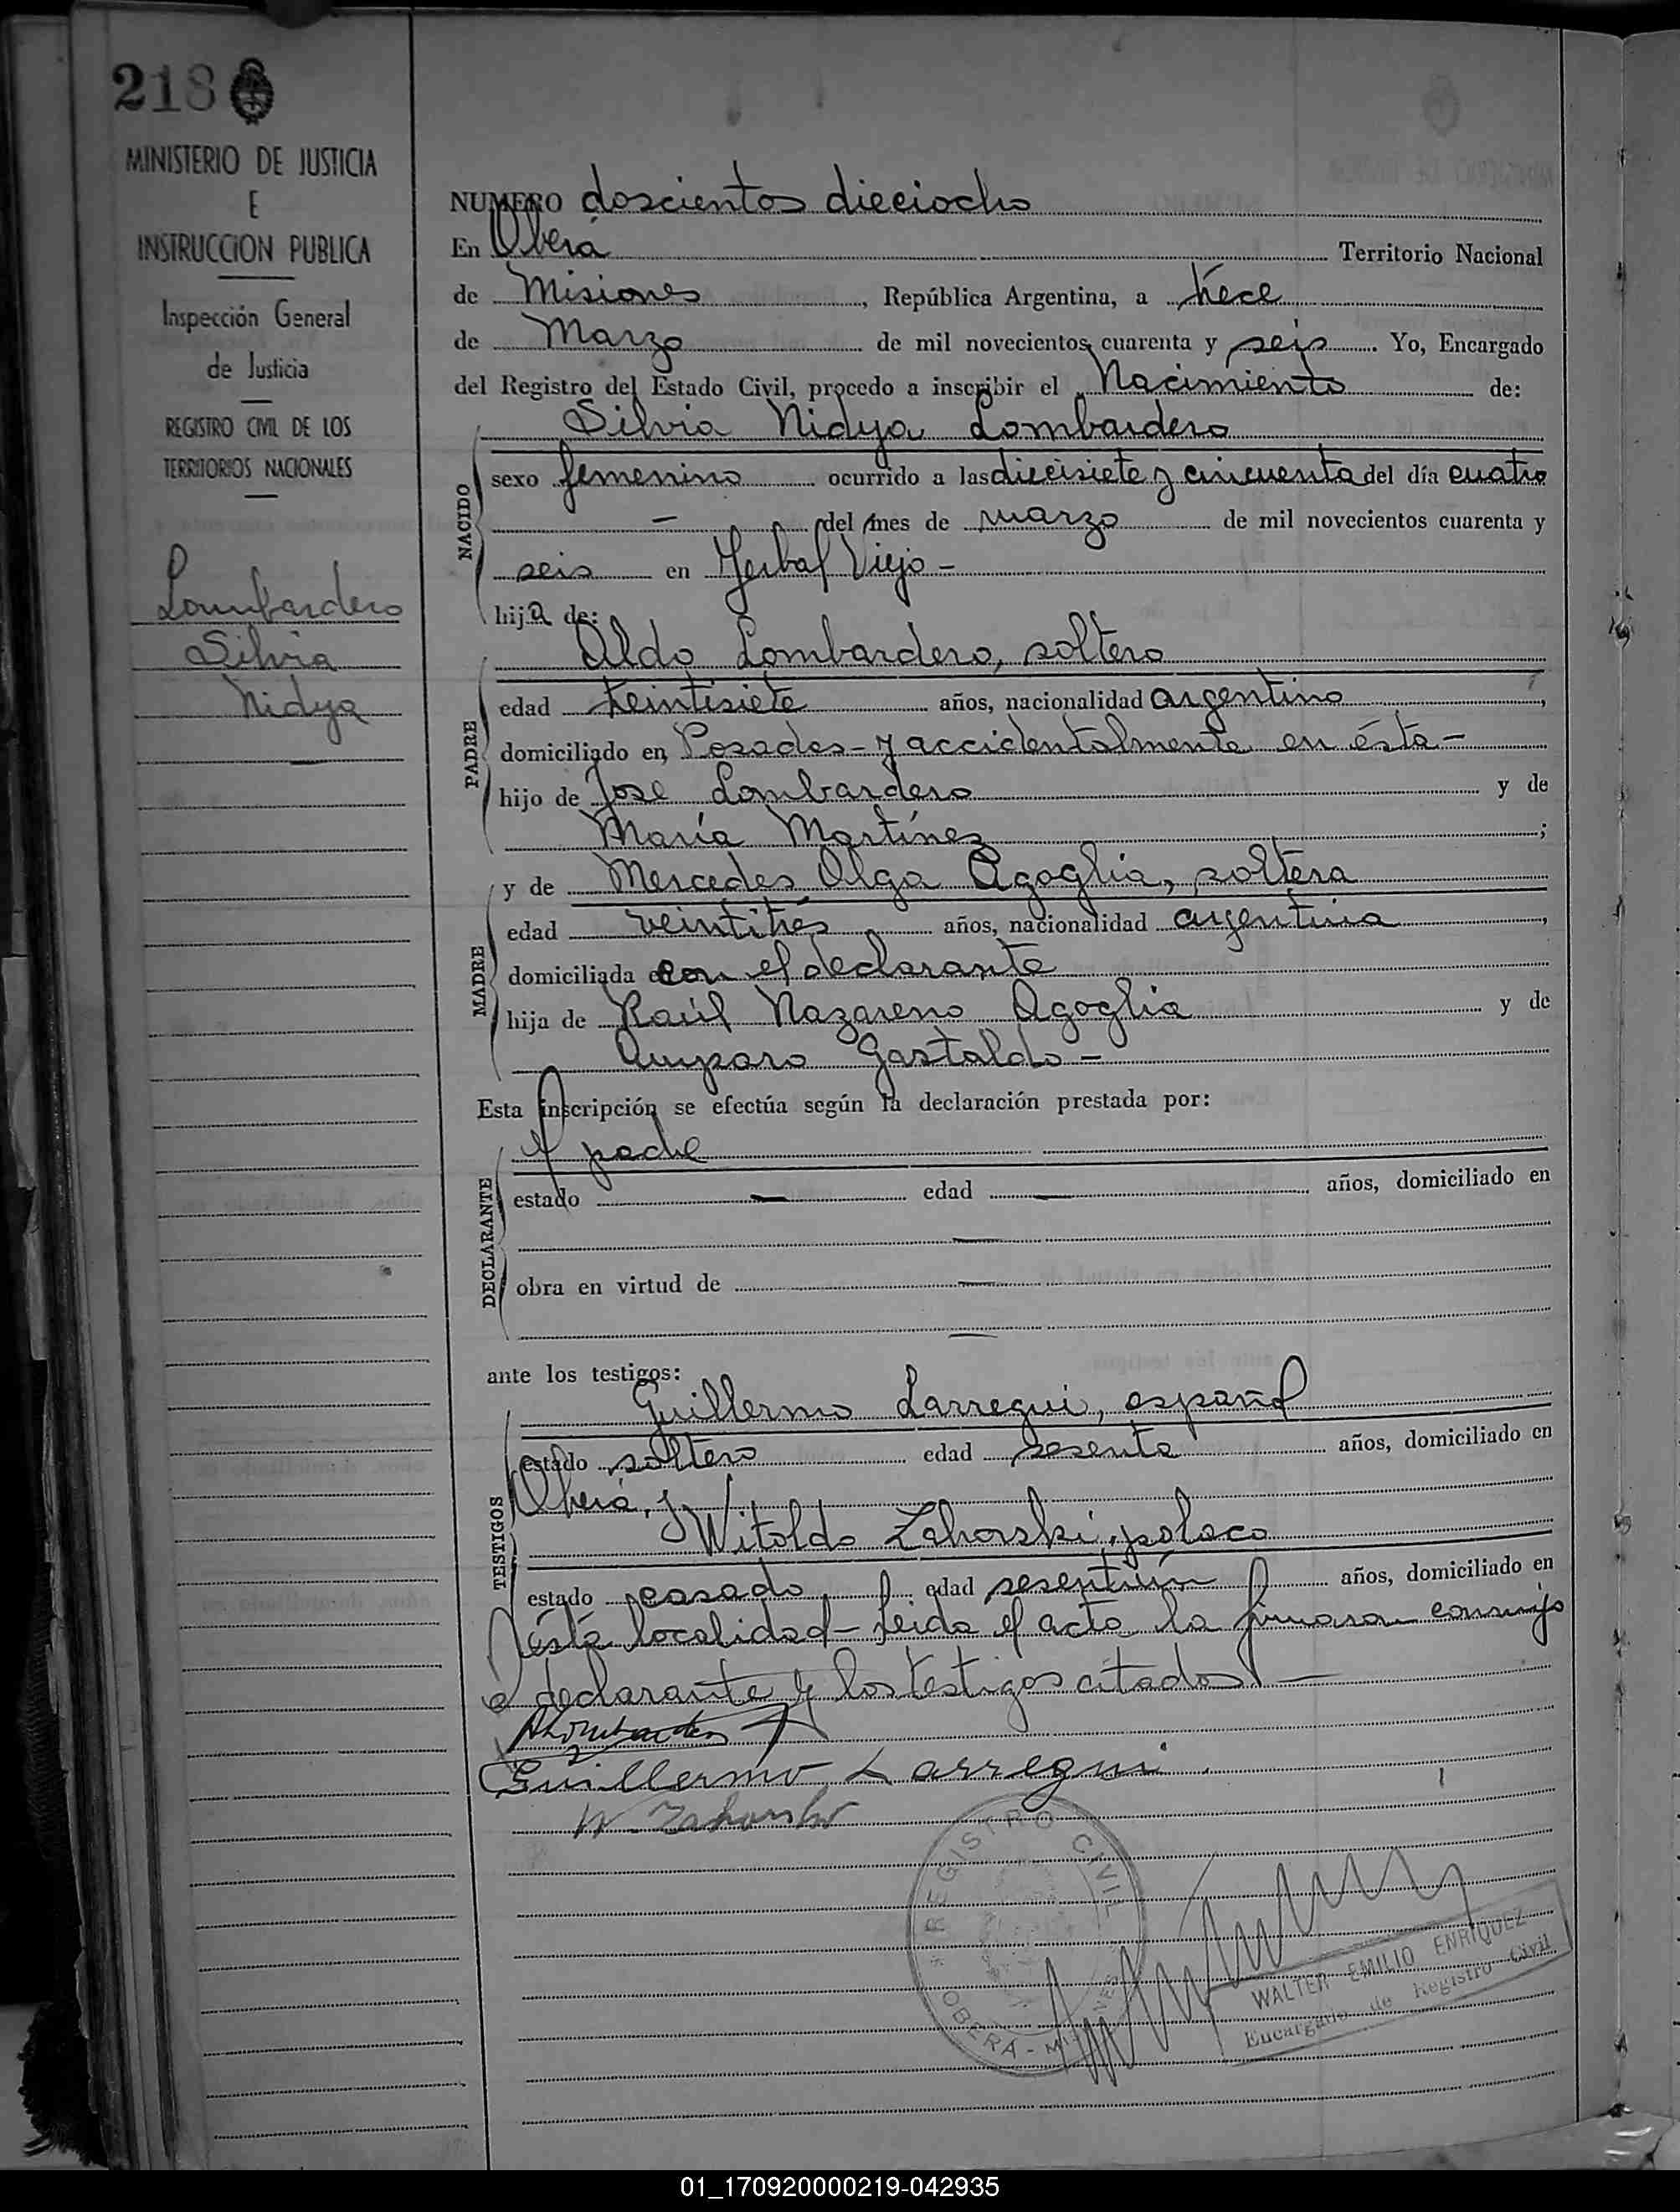 218
MINISTERIO DE JUSTICIA
E
INSTRUCCION PUBLICA
Inspección General
de Justicia
REGISTRO CIVIL DE LOS
TERRITORIOS NACIONALES
Lombardero
Silvia
Nidya
NUMERO doscientos dieciocho
En Oberá Territorio Nacional
de Misiones, República Argentina, a trece
de Marzo de mil novecientos cuarenta y seis. Yo, Encargado
del Registro del Estado Civil, procedo a inscribir el Nacimiento de:
Silvia Nidya Lombardero
NACIDO
sexo femenino ocurrido a las diecisiete y cincuenta del día cuatro
— del mes de marzo de mil novecientos cuarenta y
seis en Yerbal Viejo -
hija de:
Aldo Lombardero, soltero
PADRE
edad treintisiete años, nacionalidad argentino,
domiciliado en, Posadas - y accidentalmente en ésta -
hijo de José Lombardero y de
María Martínez;
y de Mercedes Olga Agoglia, soltera
MADRE
edad veintitrés años, nacionalidad argentina,
domiciliada con el declarante
hija de Raúl Nazareno Agoglia y de
Amparo Gastaldo -
Esta inscripción se efectúa según la declaración prestada por:
el padre
DECLARANTE
estado — edad — años, domiciliado en
—
obra en virtud de —
—
ante los testigos:
Guillermo Larregui, español
TESTIGOS
estado soltero edad sesenta años, domiciliado en
Oberá, y
Witoldo Zahorski, polaco
estado casado edad sesentiún años, domiciliado en
ésta localidad - Leida el acta la firmaron conmigo
el declarante y los testigos citados -
ALombardero
Guillermo Larregui
W. Zahorski
REGISTRO CIVIL
OBERA - MISIONES
WALTER EMILIO ENRIQUEZ
Encargado de Registro Civil
01_170920000219-042935